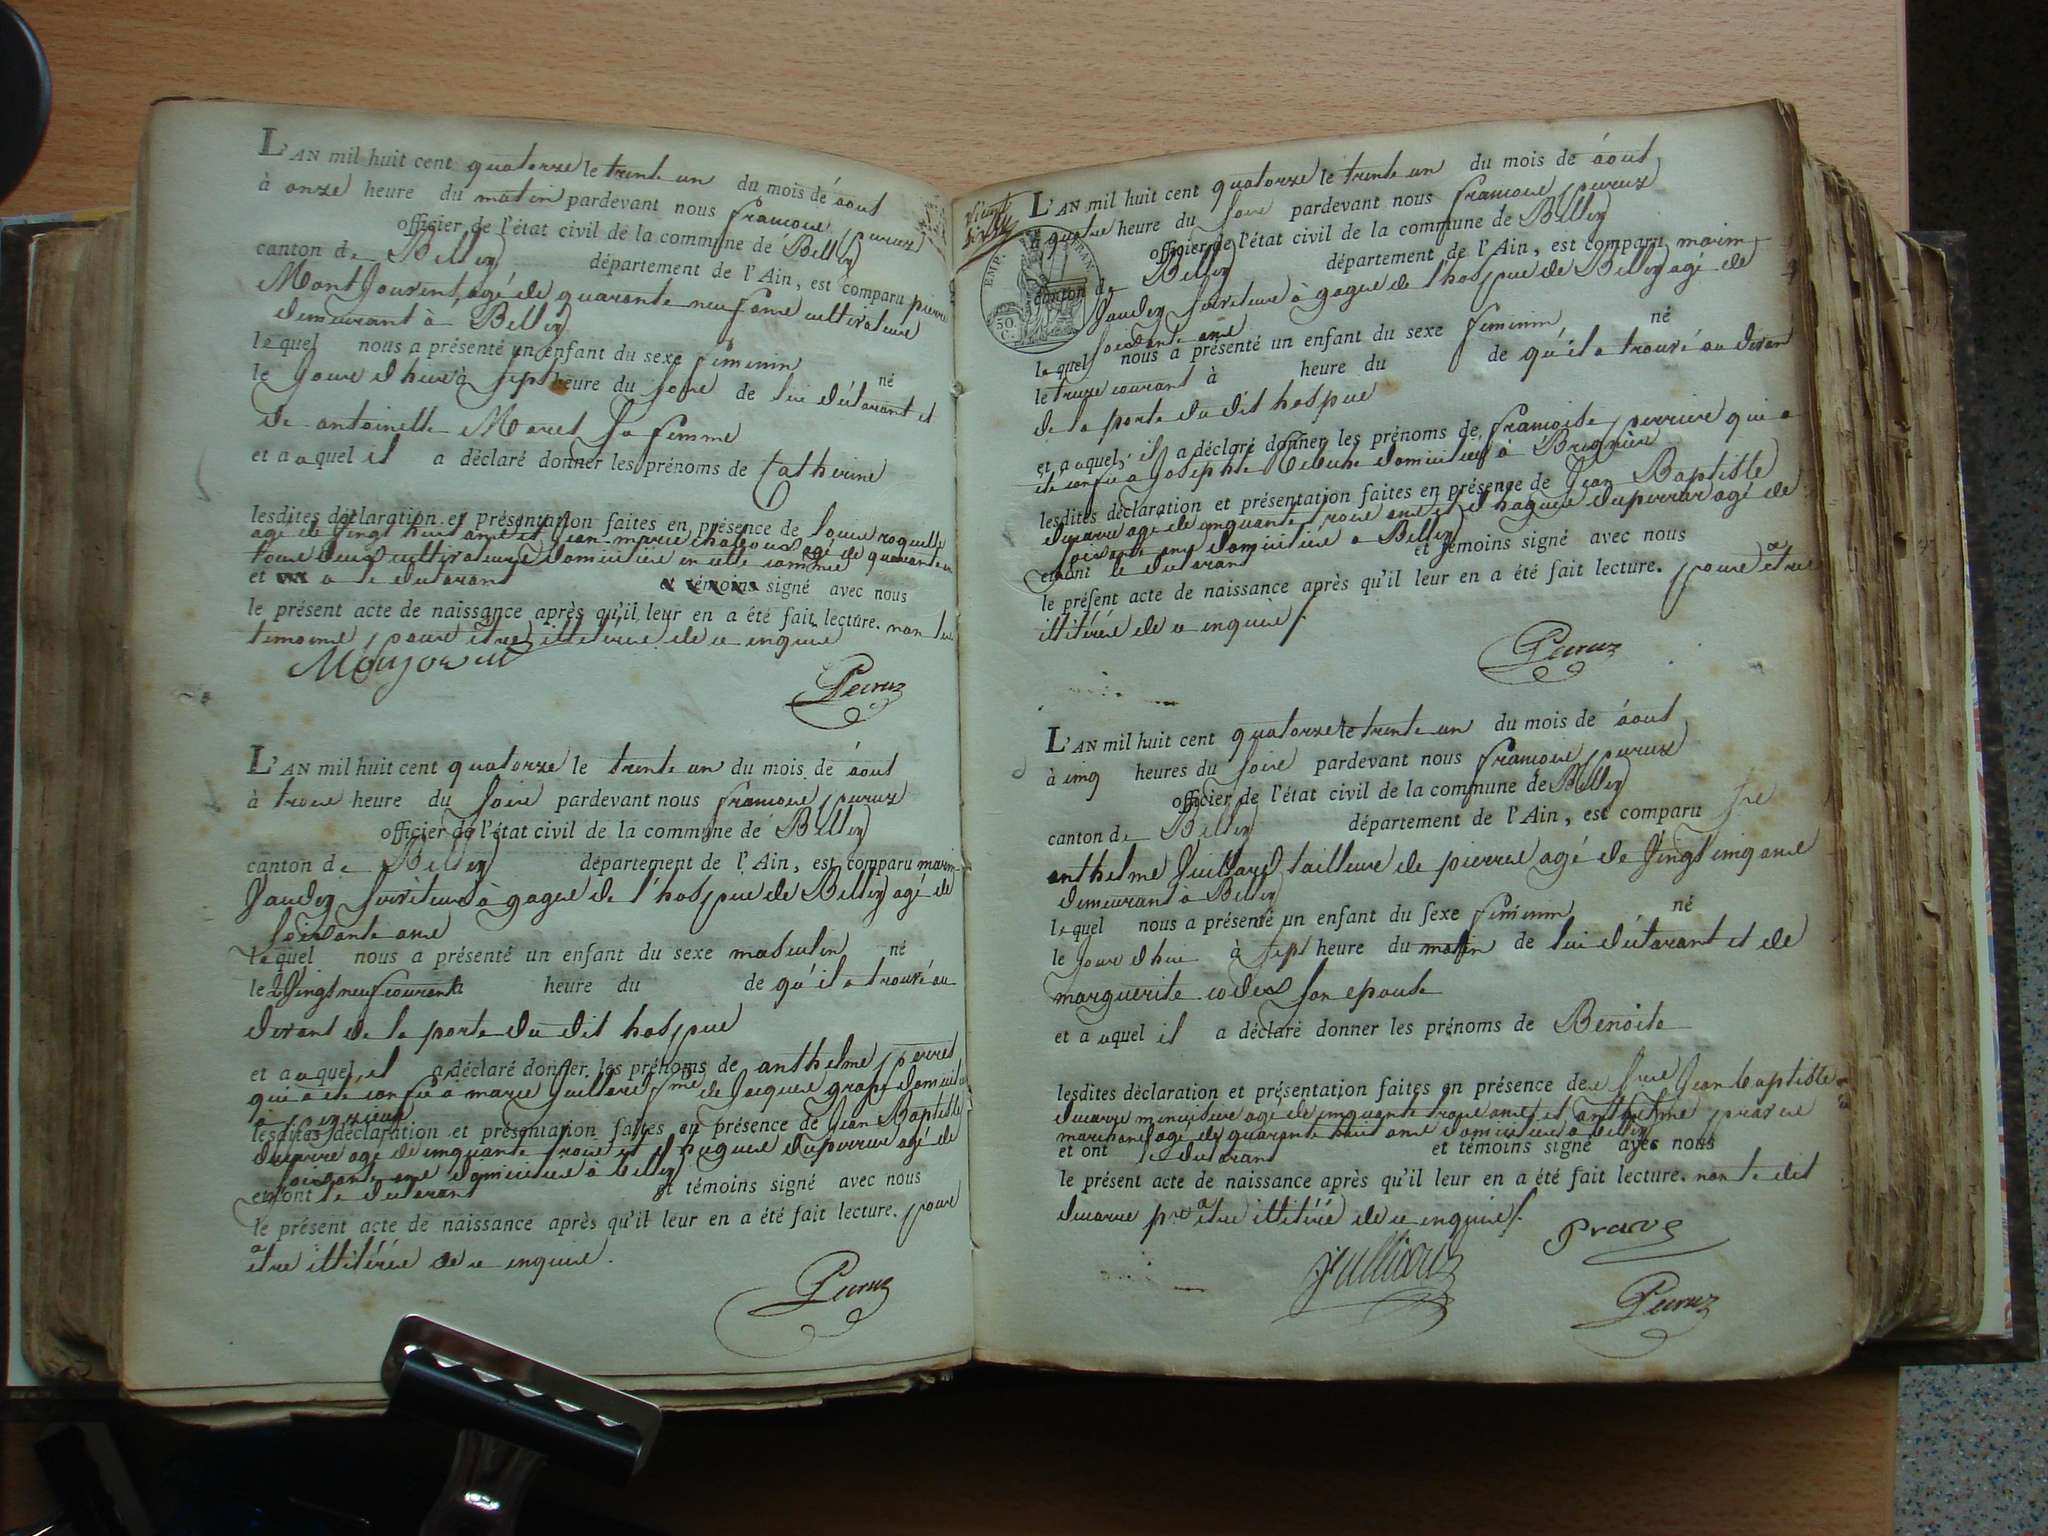 L'AN mil huit cent quatorze le trente un du mois de aout
à onze heure du matin pardevant nous francois peruz
officier de l'état civil de la commune de Belley
canton de Belley département de l'Ain, est comparu pierre
Montjouvent, agé de quarante neuf ans cultivateur
demeurant à Belley
lequel nous a présenté un enfant du sexe féminin né
le jour d'hier à sept heure du soir de lui déclarant et
de antoinette Moret sa femme
et auquel il a déclaré donner les prénoms de Catherine
lesdites déclaration et présentation faites en présence de louis
agé de vingt huit ans et jean marie agé de quarante
tous deux cultivateurs domiciliés en cette commune
et a le déclarant et témoins signé avec nous
le présent acte de naissance après qu'il leur en a été fait lecture. non les
temoins pour etre illitérés de ce enquis
Monjouvent
Peruz
L'AN mil huit cent quatorze le trente un du mois de aout
à trois heure du soir pardevant nous francois peruz
officier de l'état civil de la commune de Belley
canton de Belley département de l'Ain, est comparu marin
Jandey serviteur à gages de l'hospice de Belley agé de
soixante ans
lequel nous a présenté un enfant du sexe masculin né
le vingt neuf courant à heure du de qu'il a trouvé au
devant de la porte du dit hospice
et auquel il a déclaré donner les prénoms de anthelme perret
qui a été confié à marie Juillard fme de Jacques domicilié
à peyzieux
lesdites déclaration et présentation faites en présence de Jean Baptiste
ducarre agé de cinquante trois et d'hugues duperrier agé de
soixante ans domiciliés à belley
et ont le déclarant et témoins signé avec nous
le présent acte de naissance après qu'il leur en a été fait lecture. pour
etre illitérés de ce enquis.
Peruz
vingt
EMP. FRAN.
50 C.
L'AN mil huit cent quatorze le trente un du mois de aout
à quatre heure du soir pardevant nous francois peruz
officier de l'état civil de la commune de Belley
canton de Belley département de l'Ain, est comparu marin
Jandey serviteur à gages de l'hospice de Belley agé de
soixante ans
lequel nous a présenté un enfant du sexe féminin né
le treize courant à heure du de qu'il a trouvé au devan
de la porte du dit hospice
et auquel il a déclaré donner les prénoms de francoise perrier qui a
été confié à Josephte domicilié à Bregnier
lesdites déclaration et présentation faites en présence de Jean Baptiste
ducarre agé de cinquante trois ans et d'hugues duperrier agé de
soixante ans domiciliés à Belley
et ont le déclarant et témoins signé avec nous
le présent acte de naissance après qu'il leur en a été fait lecture. pour etre
illitérés de ce enquis.
Peruz
L'AN mil huit cent quatorze le trente un du mois de aout
à cinq heures du soir pardevant nous francois peruz
officier de l'état civil de la commune de Belley
canton de Belley département de l'Ain, est comparu sre
anthelme Juillard tailleur de pierres agé de vingt cinq ans
demeurant à Belley
lequel nous a présenté un enfant du sexe féminin né
le jour d'hui à sept heure du matin de lui déclarant et de
marguerite codex son epouse
et auquel il a déclaré donner les prénoms de Benoite
lesdites déclaration et présentation faites en présence de sieur Jean baptiste
ducarre menuisier agé de cinquante trois ans et anthelme prave
marchand agé de quarante huit ans domiciliés à belley
et ont le déclarant et témoins signé avec nous
le présent acte de naissance après qu'il leur en a été fait lecture. non le dit
ducarre pr etre illitéré de ce enquis.
Juilliard
Prave
Peruz